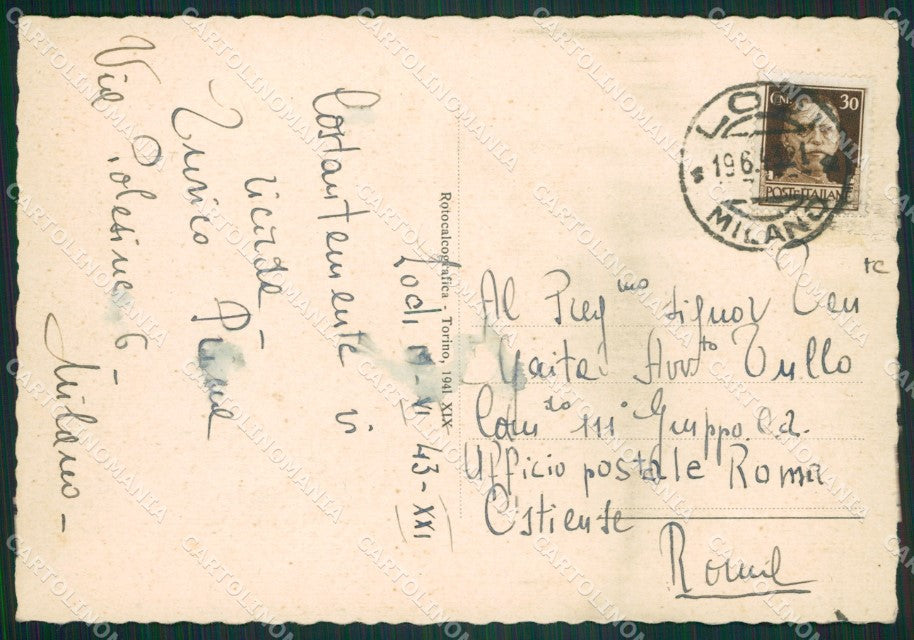 Lodi 19-VI 43-XXI
Costantemente vi
ricorda -
Enrico
Via Polesine 6 -
Milano -
Rotocalcografica - Torino, 1941-XIX
LODI
19.6.
MILANO
CENT. 30
POSTE ITALIANE
Al Preg mo signor Ten
Avv to Tullo
Com do III° Gruppo C.A.
Ufficio postale Roma
Ostiense
Roma
CARTOLINOMANIA